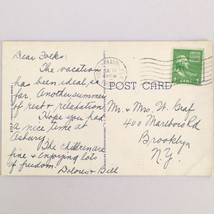 Dear Folks:
The vacation
has been ideal, so
far. Another summer
of rest & relaxation
Hope you had
a nice time at
Asbury.
The children are
fine & enjoying lots
of freedom.
Dolores & Bill
POST CARD
Mr. & Mrs. W. Graf
400 Marlboro Rd
Brooklyn
N.Y.